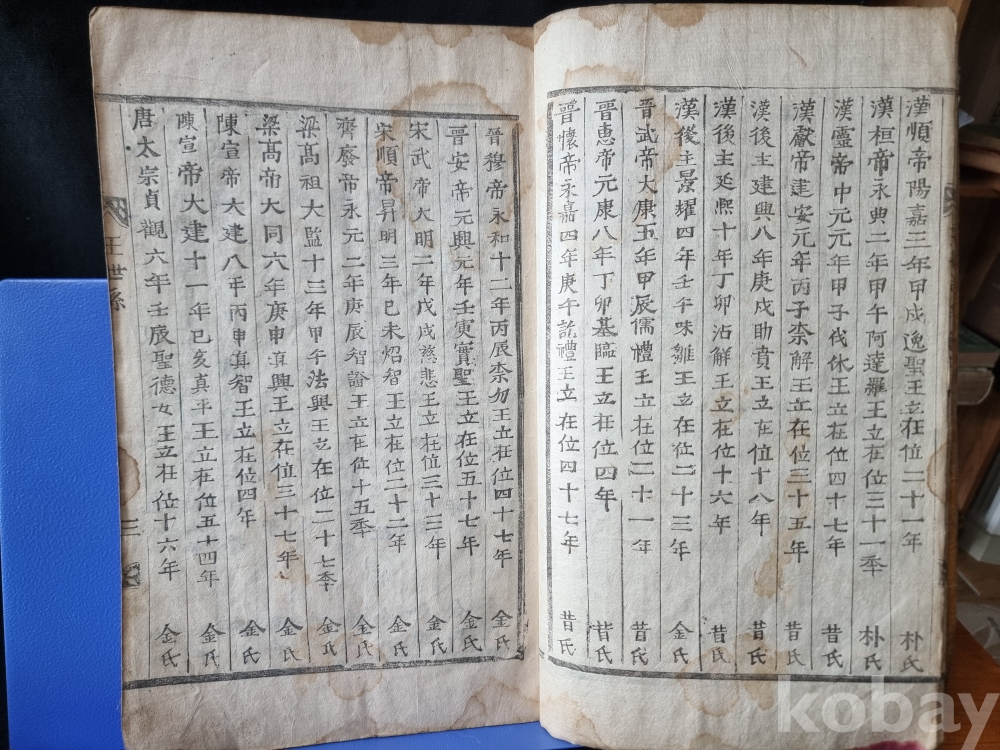 漢順帝陽嘉三年甲戌逸聖王立在位二十一年 朴氏
漢桓帝永典二年甲午阿達羅王立在位三十一年 朴氏
漢靈帝中元元年甲子伐休王立在位四十七年 昔氏
漢獻帝建安元年丙子柰解王立在位三十五年 昔氏
漢後主建興八年庚戌助賁王立在位十八年 昔氏
漢後主延熙十年丁卯沾解王立在位十六年 昔氏
漢後主景耀四年壬午味雛王立在位二十三年 金氏
晉武帝大康五年甲辰儒禮王立在位二十一年 昔氏
晉惠帝元康八年丁卯基臨王立在位四年 昔氏
晉懷帝永嘉四年庚午訖禮王立在位四十七年 昔氏
晉穆帝永和十二年丙辰柰勿王立在位四十七年 金氏
晉安帝元興元年壬寅實聖王立在位五十七年 金氏
宋武帝大明二年戊戌慈悲王立在位三十三年 金氏
宋順帝昇明三年已未炤智王立在位二十二年 金氏
齊廢帝永元二年庚辰智證王立在位十五年 金氏
梁高祖大監十三年甲午法興王立在位二十七年 金氏
梁高帝大同六年庚申真興王立在位三十七年 金氏
陳宣帝大建八年丙申真智王立在位四年 金氏
陳宣帝大建十一年已亥真平王立在位五十四年 金氏
唐太宗貞觀六年壬辰聖德女王立在位十六年 金氏
王世系
三
kobay